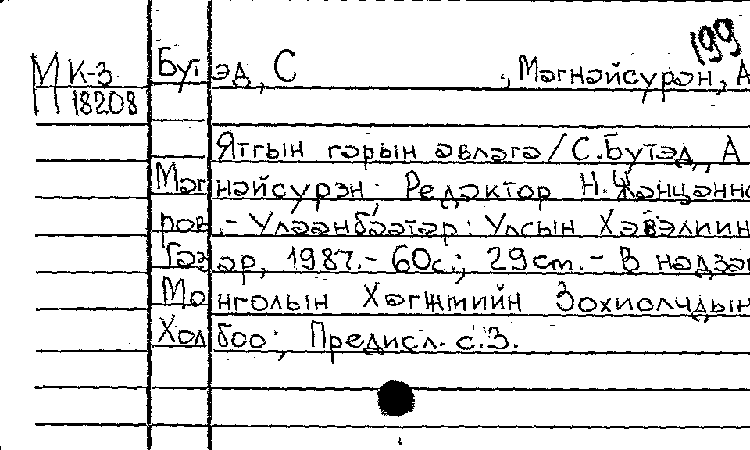 199
МК-3 Бутэд, С , Магнайсүрэн, А
П 18208
Ятгын гарын авлага / С. Бутэд, А
Магнайсүрэн; Редактор Н. Жанцанно
ров.- Улаанбаатар: Улсын Хэвэлиин
Газар, 1987.- 60с.; 29cm.- В надзаг
Монголын Хөгжмийн Зохиолчдын
Холбоо; Предисл. с.3.